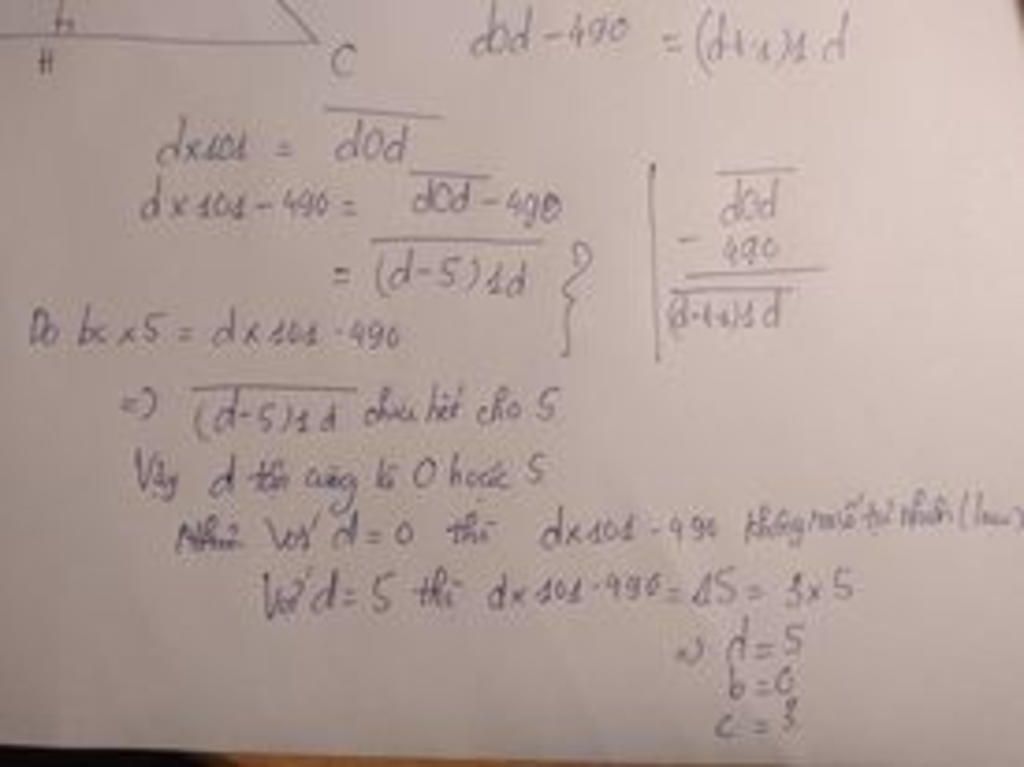 H C
d0d - 490 = (d-4-1)1d
d×101 = d0d
d×101 - 490 = d0d - 490
= (d-5)1d }
d0d
- 490
(d-4-1)1d
Do bc × 5 = d×101 - 490
=> (d-5)1d chia hết cho 5
Vậy d tận cùng là 0 hoặc 5
Với d = 0 thì d×101 - 490 không
Với d = 5 thì d×101 - 490 = 15 = 3×5
=> d = 5
b = 0
c = 3